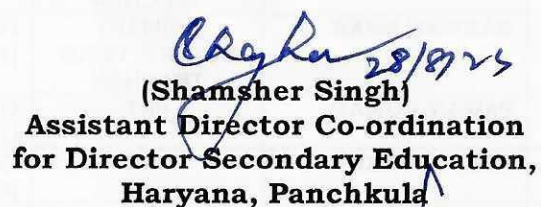 28/8/25
(Shamsher Singh)
Assistant Director Co-ordination
for Director Secondary Education,
Haryana, Panchkula